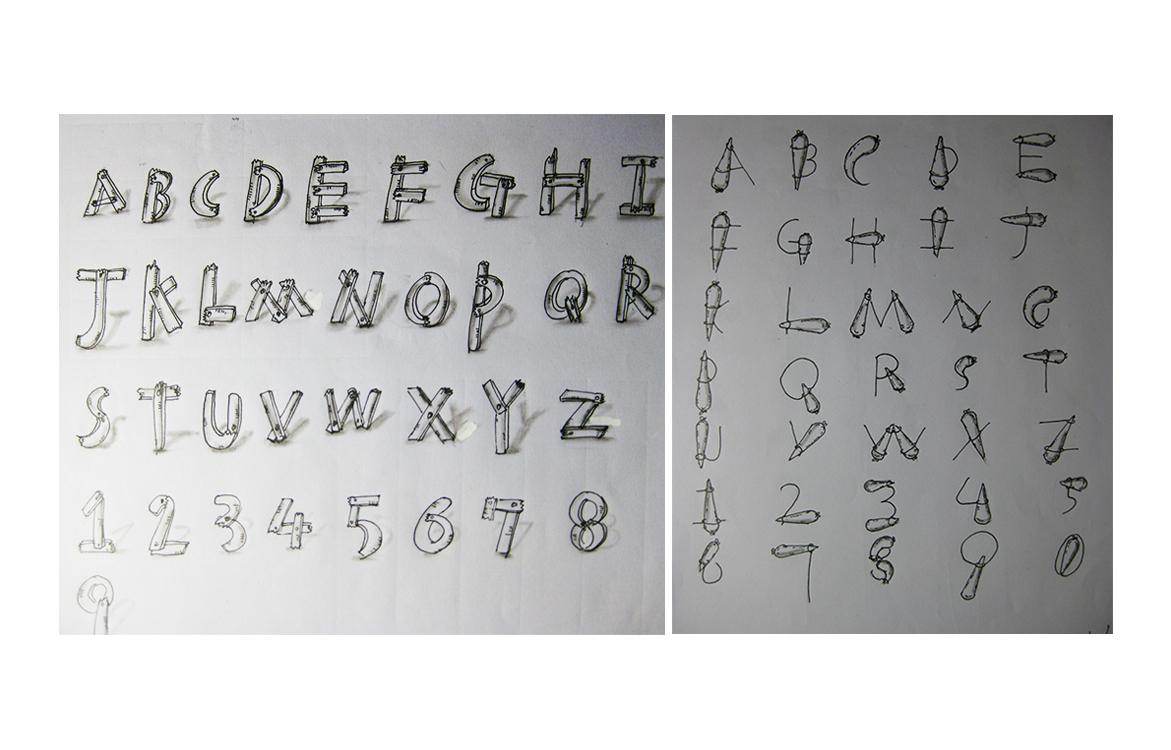 A B C D E F G H I
J K L M N O P Q R
S T U V W X Y Z
1 2 3 4 5 6 7 8
9
A B C D E
F G H I J
K L M N O
P Q R S T
U V W X Z
1 2 3 4 5
6 7 8 9 0